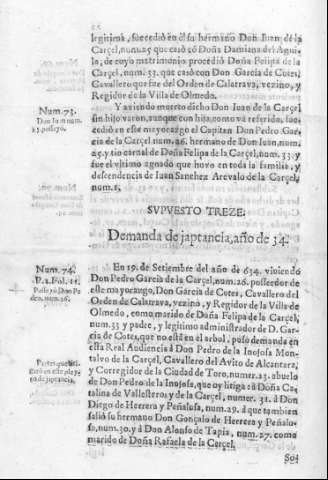 legitima, sucedió en él su hermano Don Iuan de la
Carçel, num.25 que casó có Doña Damiana del Agui
la, de cuyo matrimonio procedió Doña Felipa de la
Carçel, num. 33. que casó con Don Garcia de Cotes,
Cavallero que fue del Orden de Calatrava, vezino, y
Regidor de la Villa de Olmedo.
Num.73.
Don Iuan num.
25 posseyo.
Y aviendo muerto dicho Don Iuan de la Carçel
sin hijo varon, aunque con hija, como vá referido, su-
cedió en este mayorazgo el Capitan Don Pedro Gar-
cia de la Carçel num.26. hermano de Don Iuan, num.
25. y tio carnal de Doña Felipa de la Carçel, num. 33. y
fue el vltimo agnado que huvo en toda la familia, y
descendencia de Iuan Sanchez Arevalo de la Carçel,
num.1.
SVPVESTO TREZE.
Demanda de japtancia, año de 34.
Num. 74.
P.2.Fol.11.
Posse yó Don Pe
dro, num.26.
En 19. de Setiembre del año de 634. viviendo
Don Pedro Garcia de la Carçel, num.26. posseedor de
este mayorazgo, Don Garcia de Cotes, Cavallero del
Orden de Calatrava, vezino, y Regidor de la Villa de
Olmedo, como marido de Doña Felipa de la Carçel,
num.33 y padre, y legitimo administrador de D. Gar-
cia de Cotes, que no está en el arbol, puso demanda en
esta Real Audiencia á Don Pedro de la Inojosa Mon-
talvo de la Carçel, Cavallero del Avito de Alcantara,
y Corregidor de la Ciudad de Toro, num. abuelo
de Don Pedro de la Inojosa, que oy litiga á Doña Ca-
talina de Vallesteros y de la Carçel, numer. 31. á Don
Diego de Herrera y Peñalosa, num.29. á que tambien
salió su hermano Don Gonçalo de Herrera y Peñalo-
sa, num.30. y á Don Alonso de Tapia, num.27. como
marido de Doña Rafaela de la Carçel.